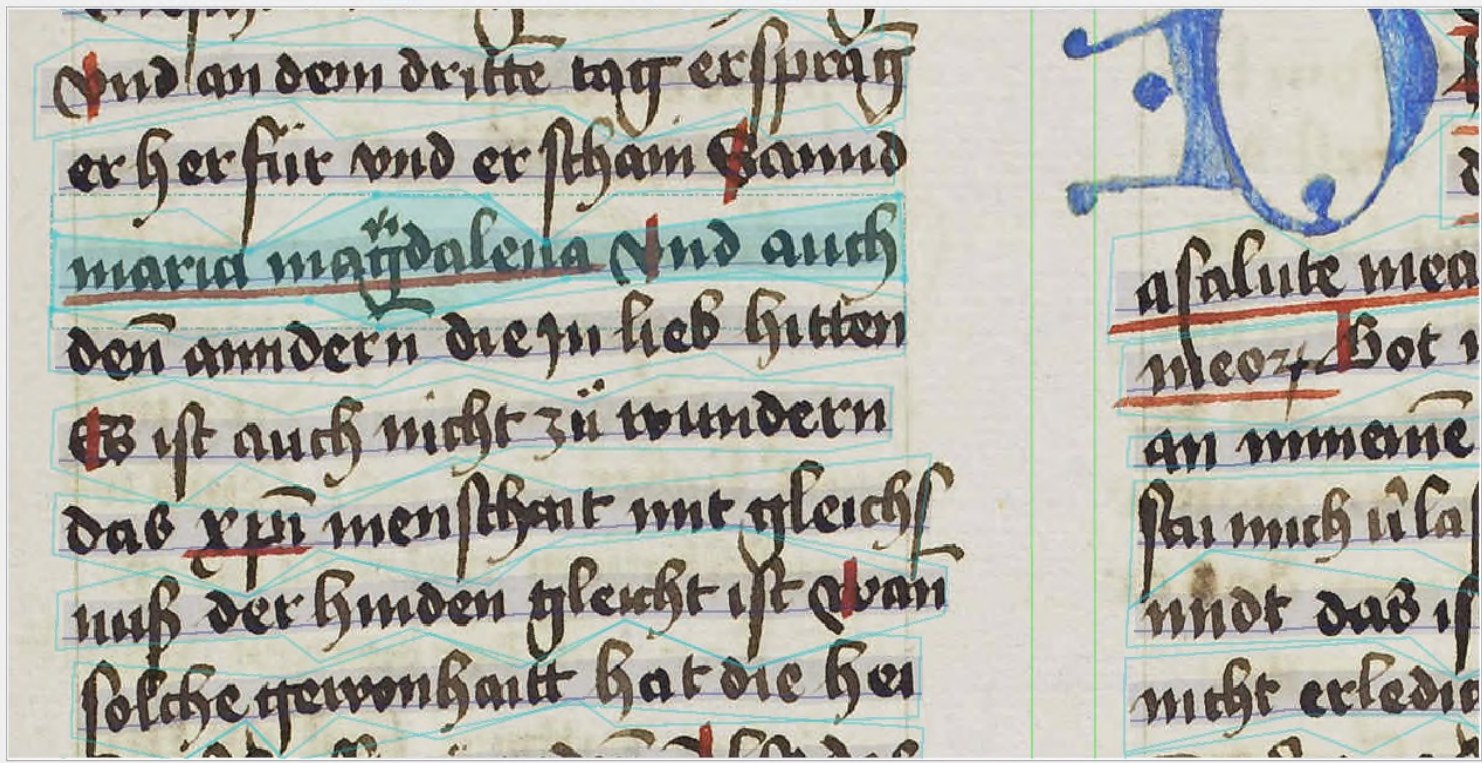 vnd an dem dritte̅ tag ersprag̅
er herfür vnd er scham Sannd
maria mag̈dalena Vnd auch
den̅ anndern̅ die jn lieb hitten̅
Es ist auch nicht zü wundern
das xpn̅ menschait mit gleichs
nuß der hinden gleicht ist wan̅
solche gewonhaitt hat die hei
asalute mea
meoꝝ Got
an
mich
das
nicht erledi